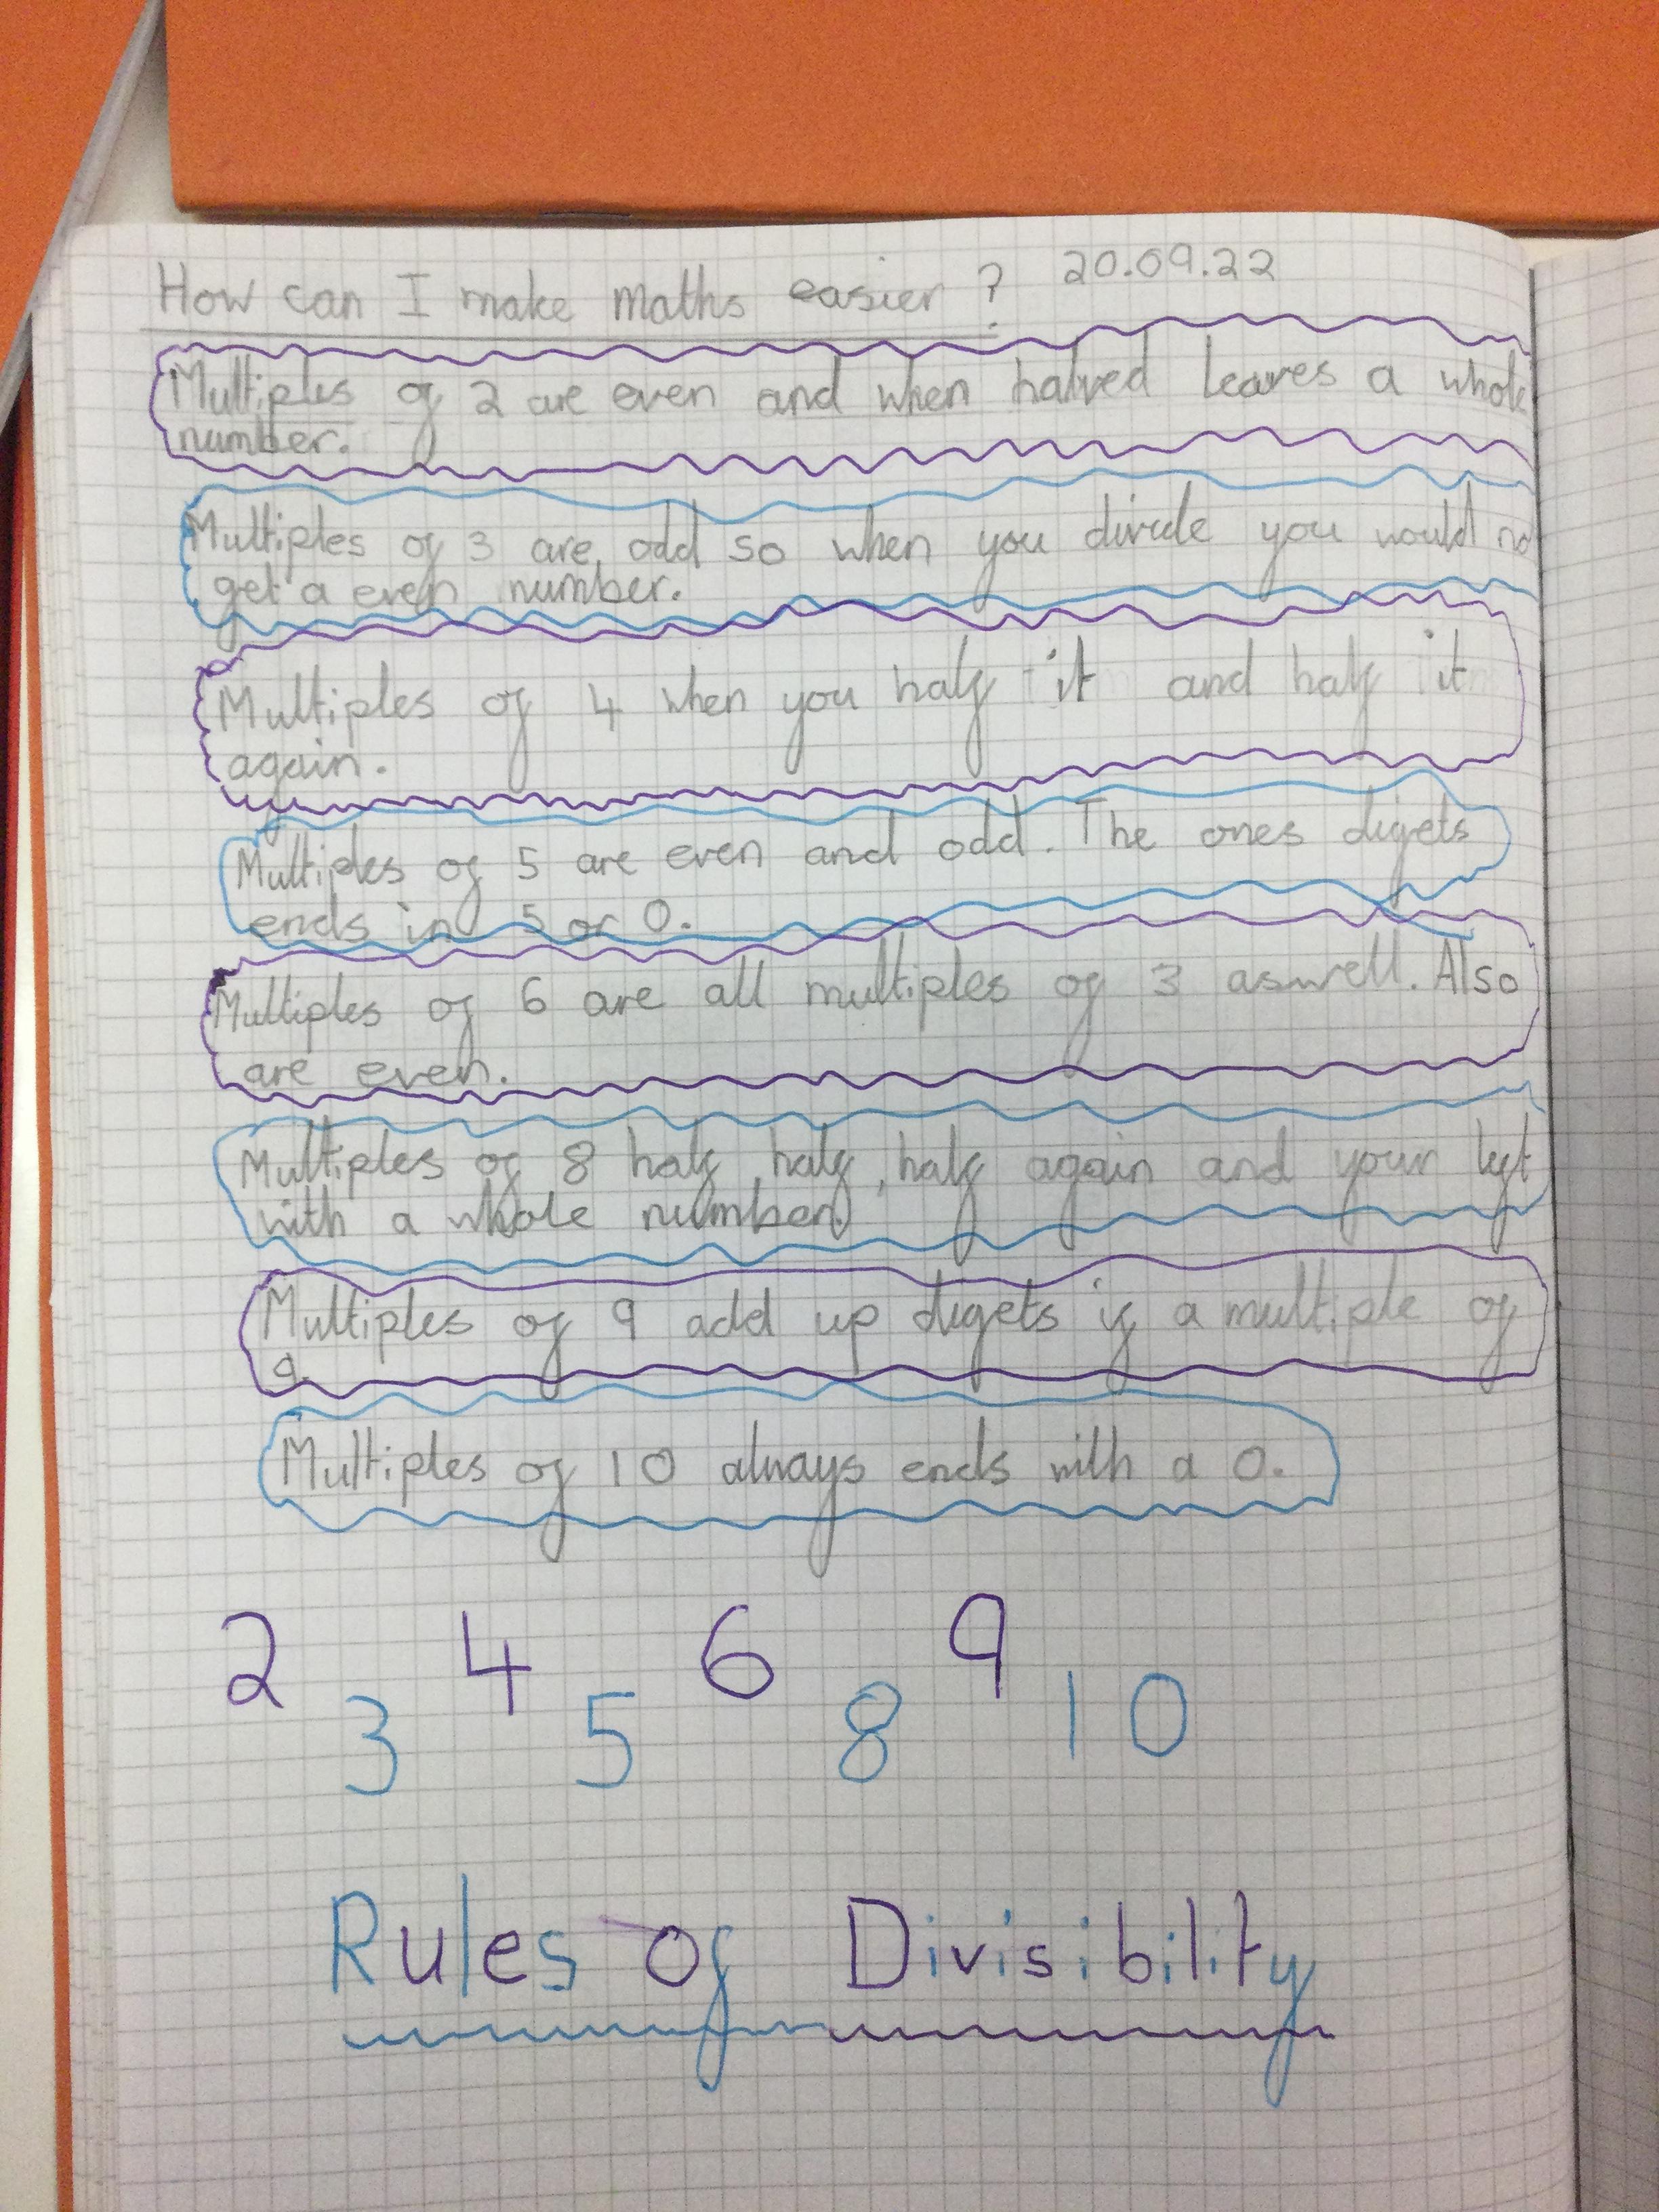 How can I make maths easier ? 20.09.22
Multiples of 2 are even and when halved leaves a whole
number.
Multiples of 3 are odd so when you divide you would no
get a even number.
Multiples of 4 when you half it and half it
again.
Multiples of 5 are even and odd. The ones digets
ends in 5 or 0.
Multiples of 6 are all multiples of 3 aswell. Also
are even.
Multiples of 8 half half, half again and your left
with a whole number.
Multiples of 9 add up digets if a multiple of
9.
Multiples of 10 always ends with a 0.
2 4 6 9
3 5 8 10
Rules of Divisibility